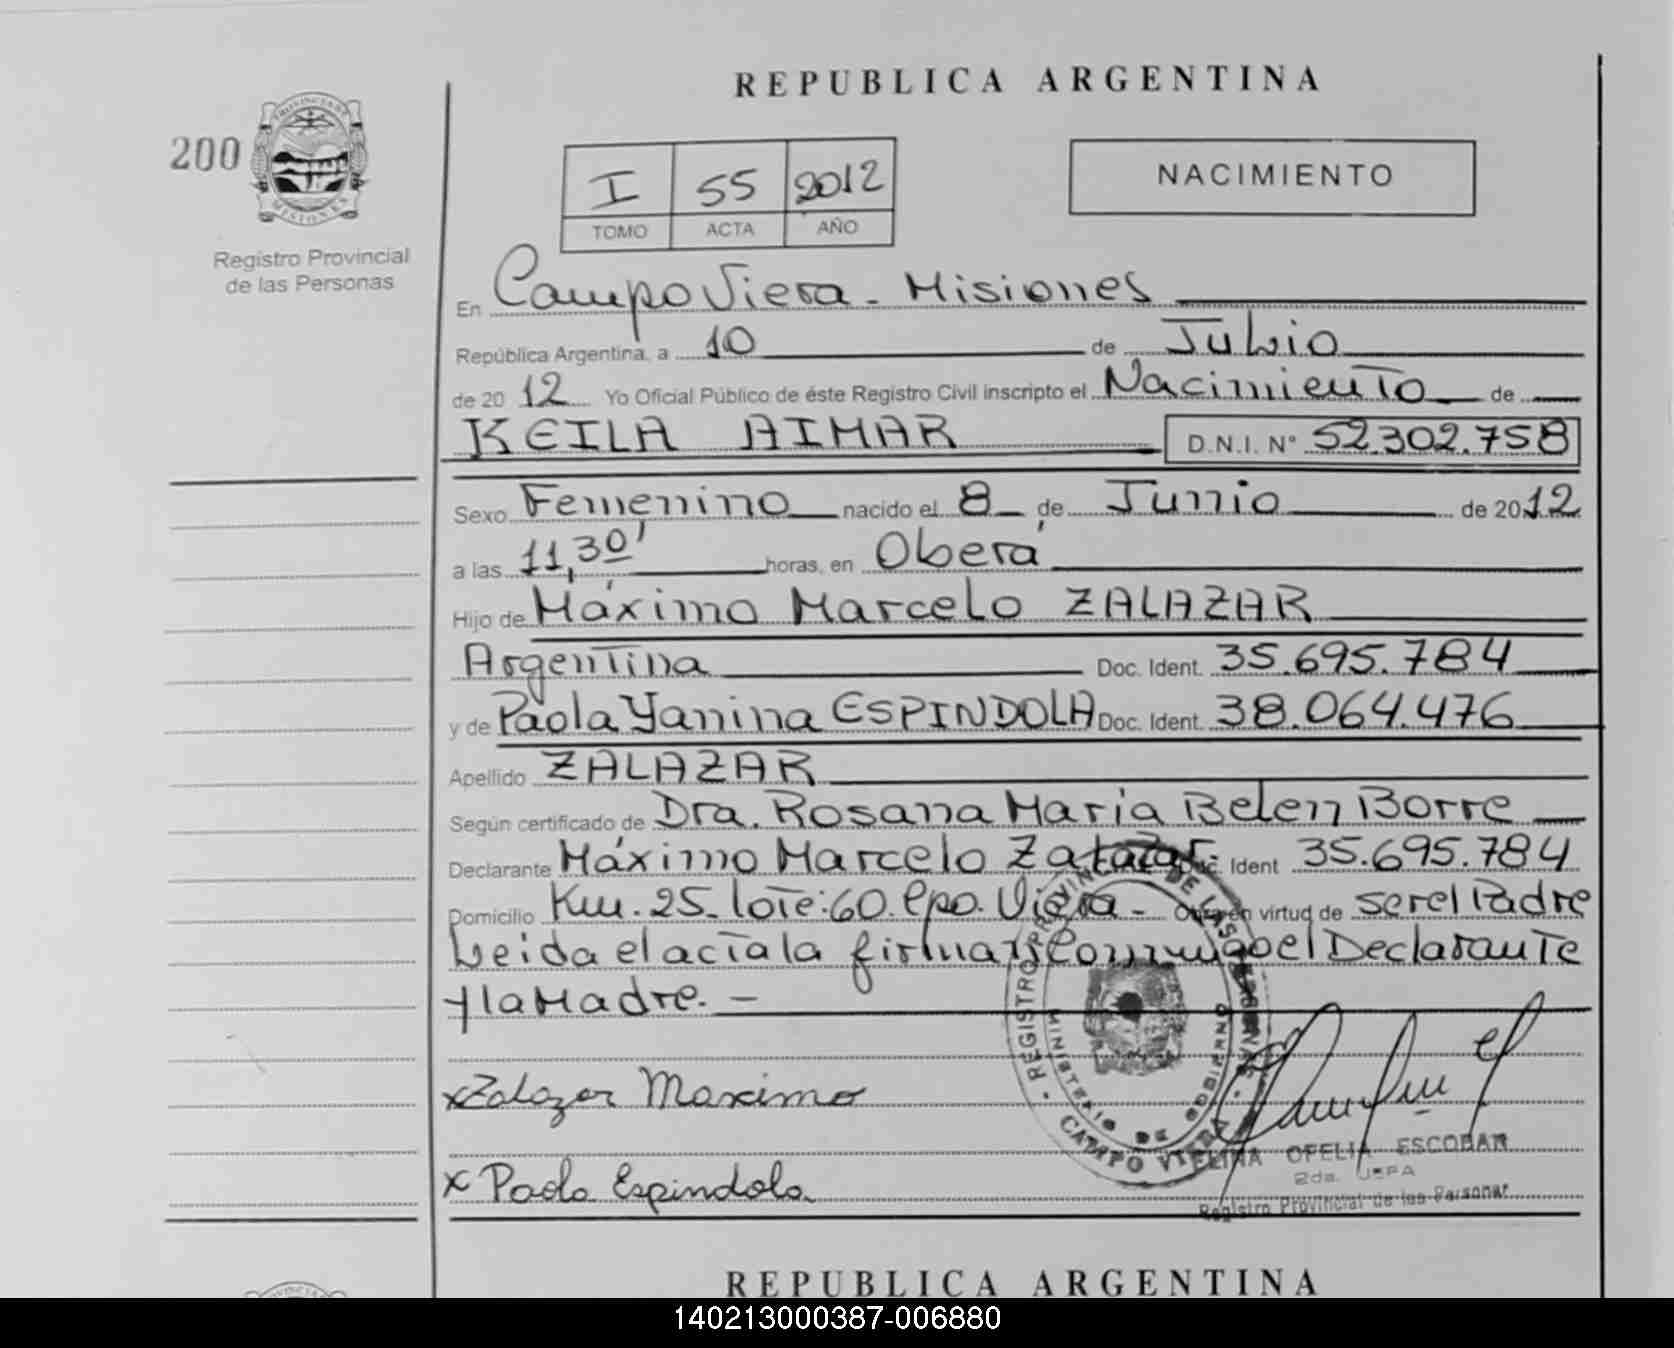 REPUBLICA ARGENTINA
200
PROVINCIA DE
MISIONES
Registro Provincial
de las Personas
I 55 2012
TOMO ACTA AÑO
NACIMIENTO
En Campo Viera - Misiones
República Argentina, a 10 de Julio
de 2012 Yo Oficial Público de éste Registro Civil inscripto el Nacimiento de
KEILA AIMAR D.N.I. N° 52.302.758
Sexo Femenino nacido el 8 de Junio de 2012
a las 11,30' horas, en Oberá
Hijo de Máximo Marcelo ZALAZAR
Argentina Doc. Ident. 35.695.784
y de Paola Yanina ESPINDOLA Doc. Ident. 38.064.476
Apellido ZALAZAR
Según certificado de Dra. Rosana Maria Belen Borre
Declarante Máximo Marcelo Zalazar Doc. Ident 35.695.784
Domicilio Km. 25 - lote: 60. Cpo. Viera - Obra en virtud de ser el Padre
Leida el acta la firman conmigo el Declarante
y la Madre. -
x Zalazar Maximo
x Paola Espindola
REGISTRO PROVINCIAL DE LAS PERSONAS
MINISTERIO DE GOBIERNO
CAMPO VIERA
OFELIA ESCOBAR
2da.
Registro Provincial de las Personas
REPUBLICA ARGENTINA
140213000387-006880